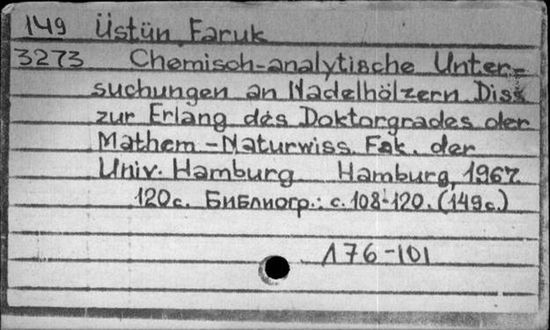 149 Üstün Faruk
3273 Chemisch-analytische Unter-
suchungen an Nadelhölzern Diss
zur Erlang des Doktorgrades der
Mathem-Naturwiss. Fak. der
Univ. Hamburg Hamburg, 1967.
120с. Библиогр.: с. 108-120. (149с.)
176-101